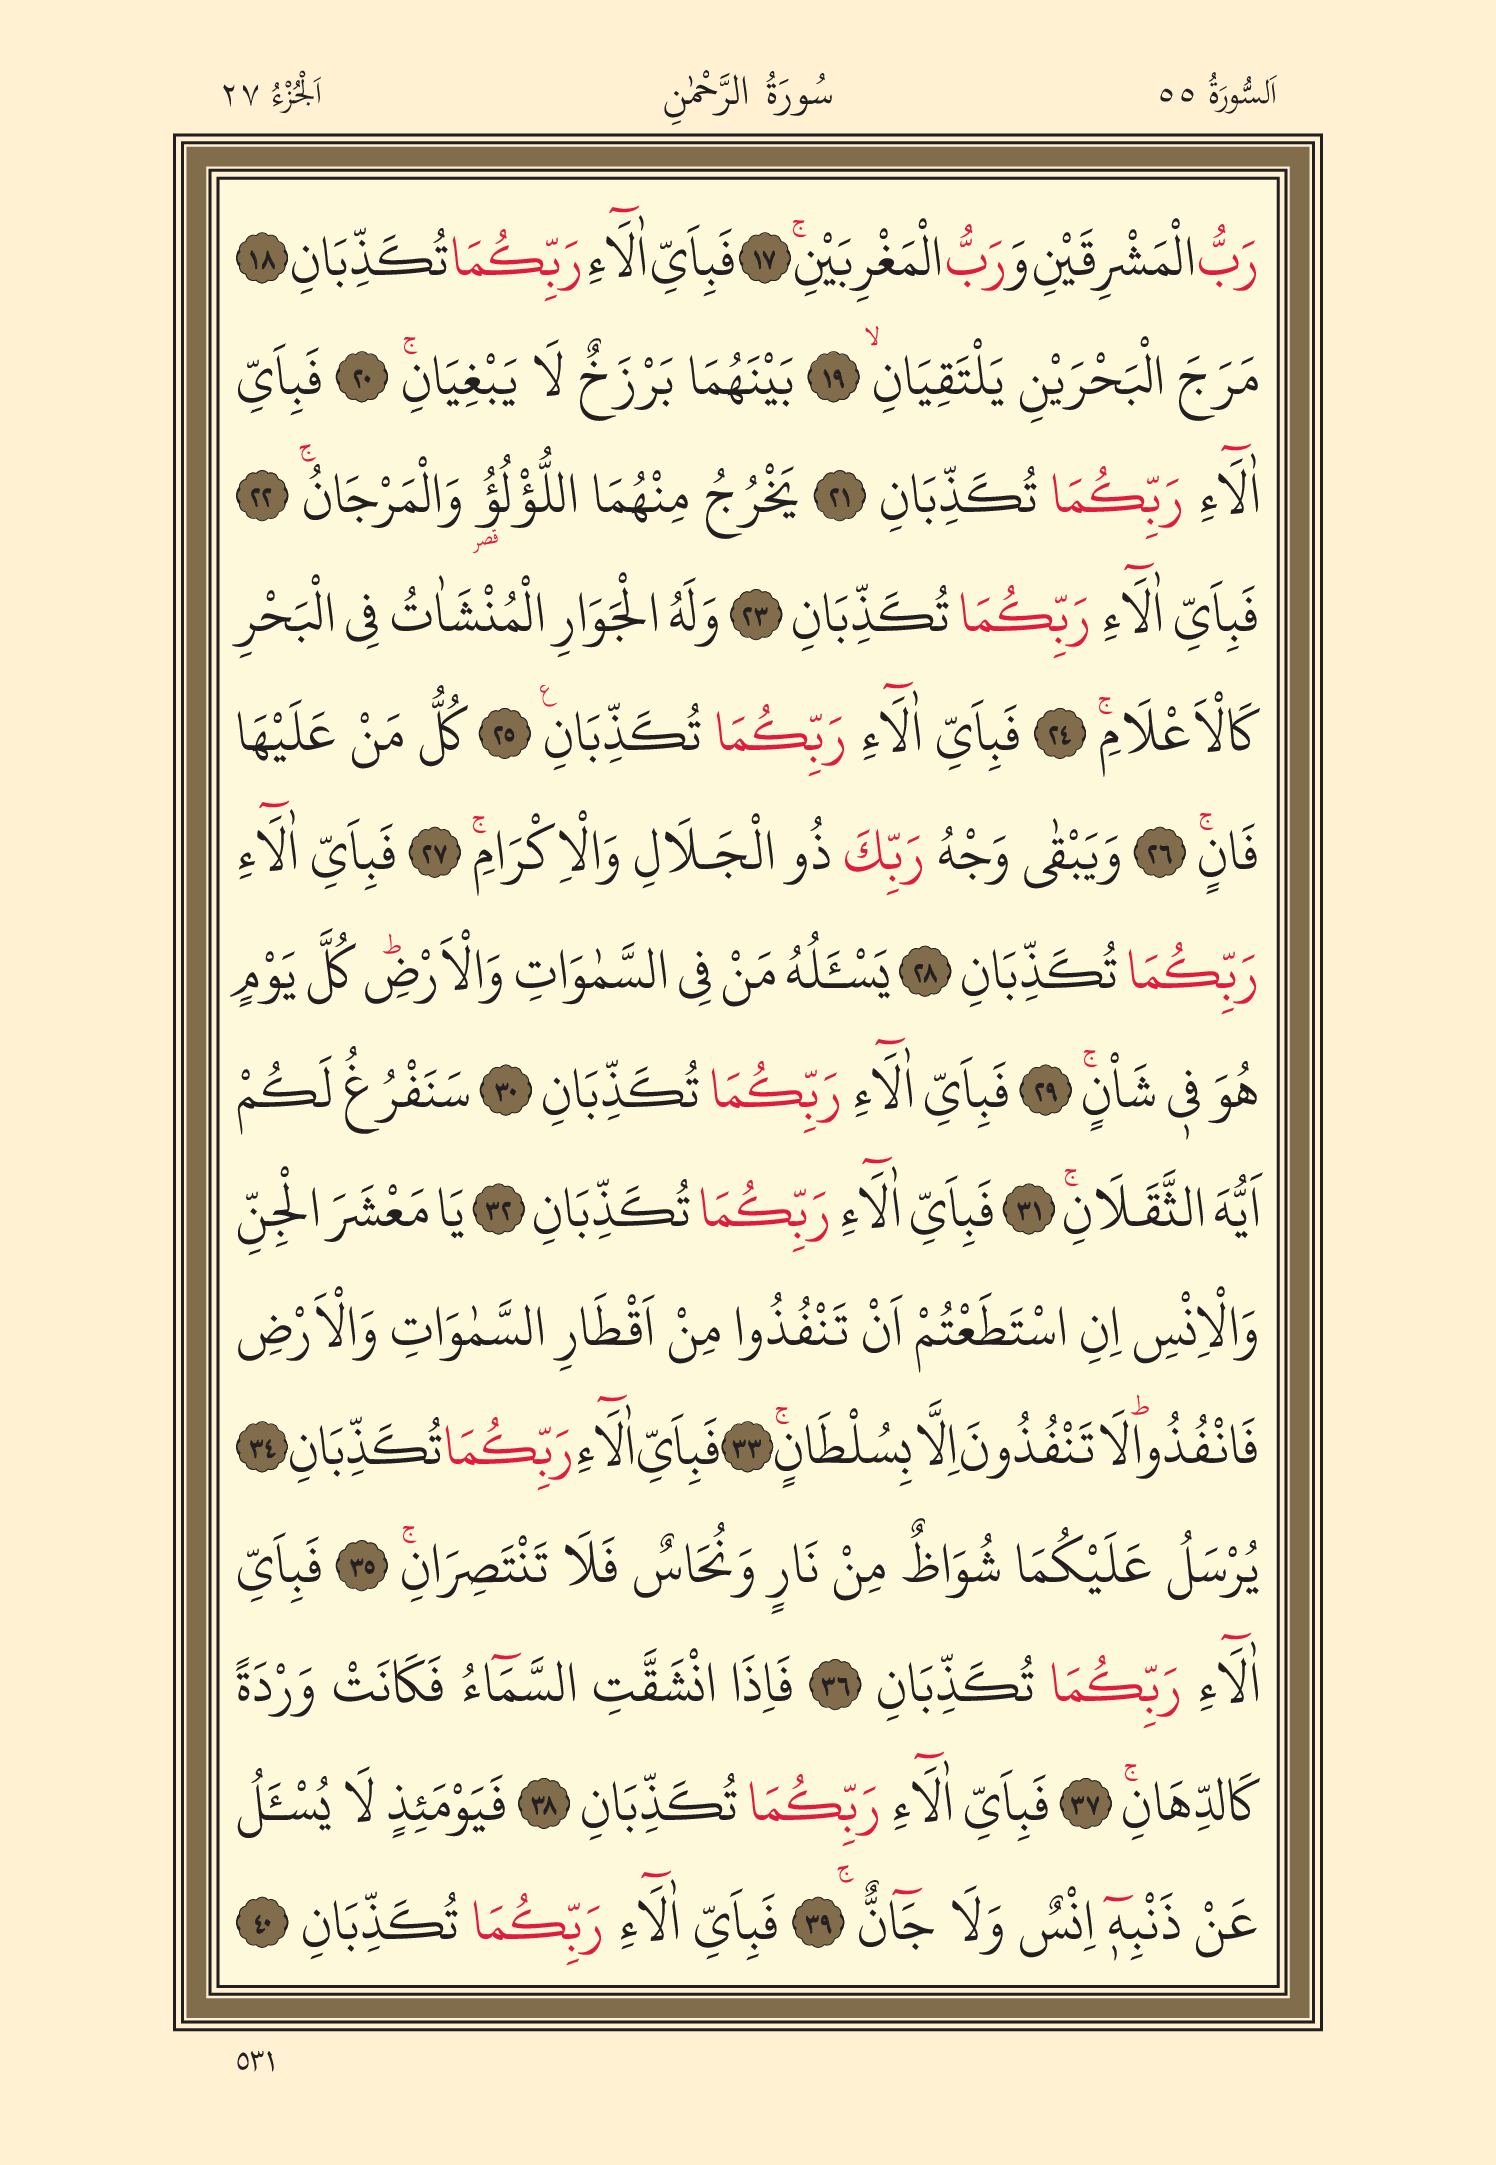 اَلسُّورَةُ ٥٥ سُورَةُ الرَّحْمٰنِ اَلْجُزْءُ ٢٧
رَبُّ الْمَشْرِقَيْنِ وَرَبُّ الْمَغْرِبَيْنِۚ ١٧ فَبِاَيِّ اٰلَٓاءِ رَبِّكُمَا تُكَذِّبَانِ ١٨
مَرَجَ الْبَحْرَيْنِ يَلْتَقِيَانِۙ ١٩ بَيْنَهُمَا بَرْزَخٌ لَا يَبْغِيَانِۚ ٢٠ فَبِاَيِّ
اٰلَٓاءِ رَبِّكُمَا تُكَذِّبَانِ ٢١ يَخْرُجُ مِنْهُمَا اللُّؤْلُؤُ وَالْمَرْجَانُۚ ٢٢
قصر
فَبِاَيِّ اٰلَٓاءِ رَبِّكُمَا تُكَذِّبَانِ ٢٣ وَلَهُ الْجَوَارِ الْمُنْشَاٰتُ فِى الْبَحْرِ
كَالْاَعْلَامِۚ ٢٤ فَبِاَيِّ اٰلَٓاءِ رَبِّكُمَا تُكَذِّبَانِ ع ٢٥ كُلُّ مَنْ عَلَيْهَا
فَانٍۚ ٢٦ وَيَبْقٰى وَجْهُ رَبِّكَ ذُو الْجَلَالِ وَالْاِكْرَامِۚ ٢٧ فَبِاَيِّ اٰلَٓاءِ
رَبِّكُمَا تُكَذِّبَانِ ٢٨ يَسْـَٔلُهُ مَنْ فِى السَّمٰوَاتِ وَالْاَرْضِۜ كُلَّ يَوْمٍ
هُوَ ف۪ى شَاْنٍۚ ٢٩ فَبِاَيِّ اٰلَٓاءِ رَبِّكُمَا تُكَذِّبَانِ ٣٠ سَنَفْرُغُ لَكُمْ
اَيُّهَ الثَّقَلَانِۚ ٣١ فَبِاَيِّ اٰلَٓاءِ رَبِّكُمَا تُكَذِّبَانِ ٣٢ يَا مَعْشَرَ الْجِنِّ
وَالْاِنْسِ اِنِ اسْتَطَعْتُمْ اَنْ تَنْفُذُوا مِنْ اَقْطَارِ السَّمٰوَاتِ وَالْاَرْضِ
فَانْفُذُواۜ لَا تَنْفُذُونَ اِلَّا بِسُلْطَانٍۚ ٣٣ فَبِاَيِّ اٰلَٓاءِ رَبِّكُمَا تُكَذِّبَانِ ٣٤
يُرْسَلُ عَلَيْكُمَا شُوَاظٌ مِنْ نَارٍ وَنُحَاسٌ فَلَا تَنْتَصِرَانِۚ ٣٥ فَبِاَيِّ
اٰلَٓاءِ رَبِّكُمَا تُكَذِّبَانِ ٣٦ فَاِذَا انْشَقَّتِ السَّمَٓاءُ فَكَانَتْ وَرْدَةً
كَالدِّهَانِۚ ٣٧ فَبِاَيِّ اٰلَٓاءِ رَبِّكُمَا تُكَذِّبَانِ ٣٨ فَيَوْمَئِذٍ لَا يُسْـَٔلُ
عَنْ ذَنْبِه۪ٓ اِنْسٌ وَلَا جَٓانٌّۚ ٣٩ فَبِاَيِّ اٰلَٓاءِ رَبِّكُمَا تُكَذِّبَانِ ٤٠
٥٣١